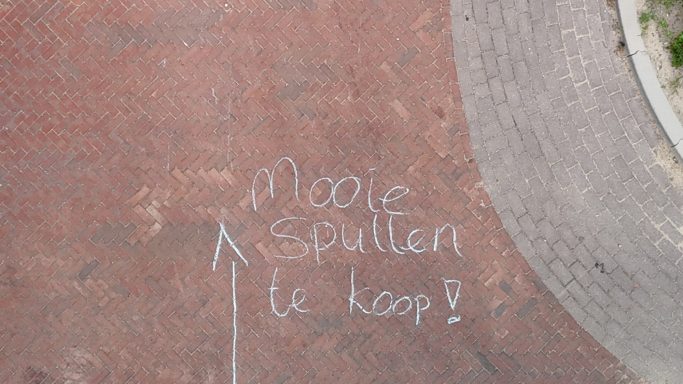 Mooie
spullen
te koop!